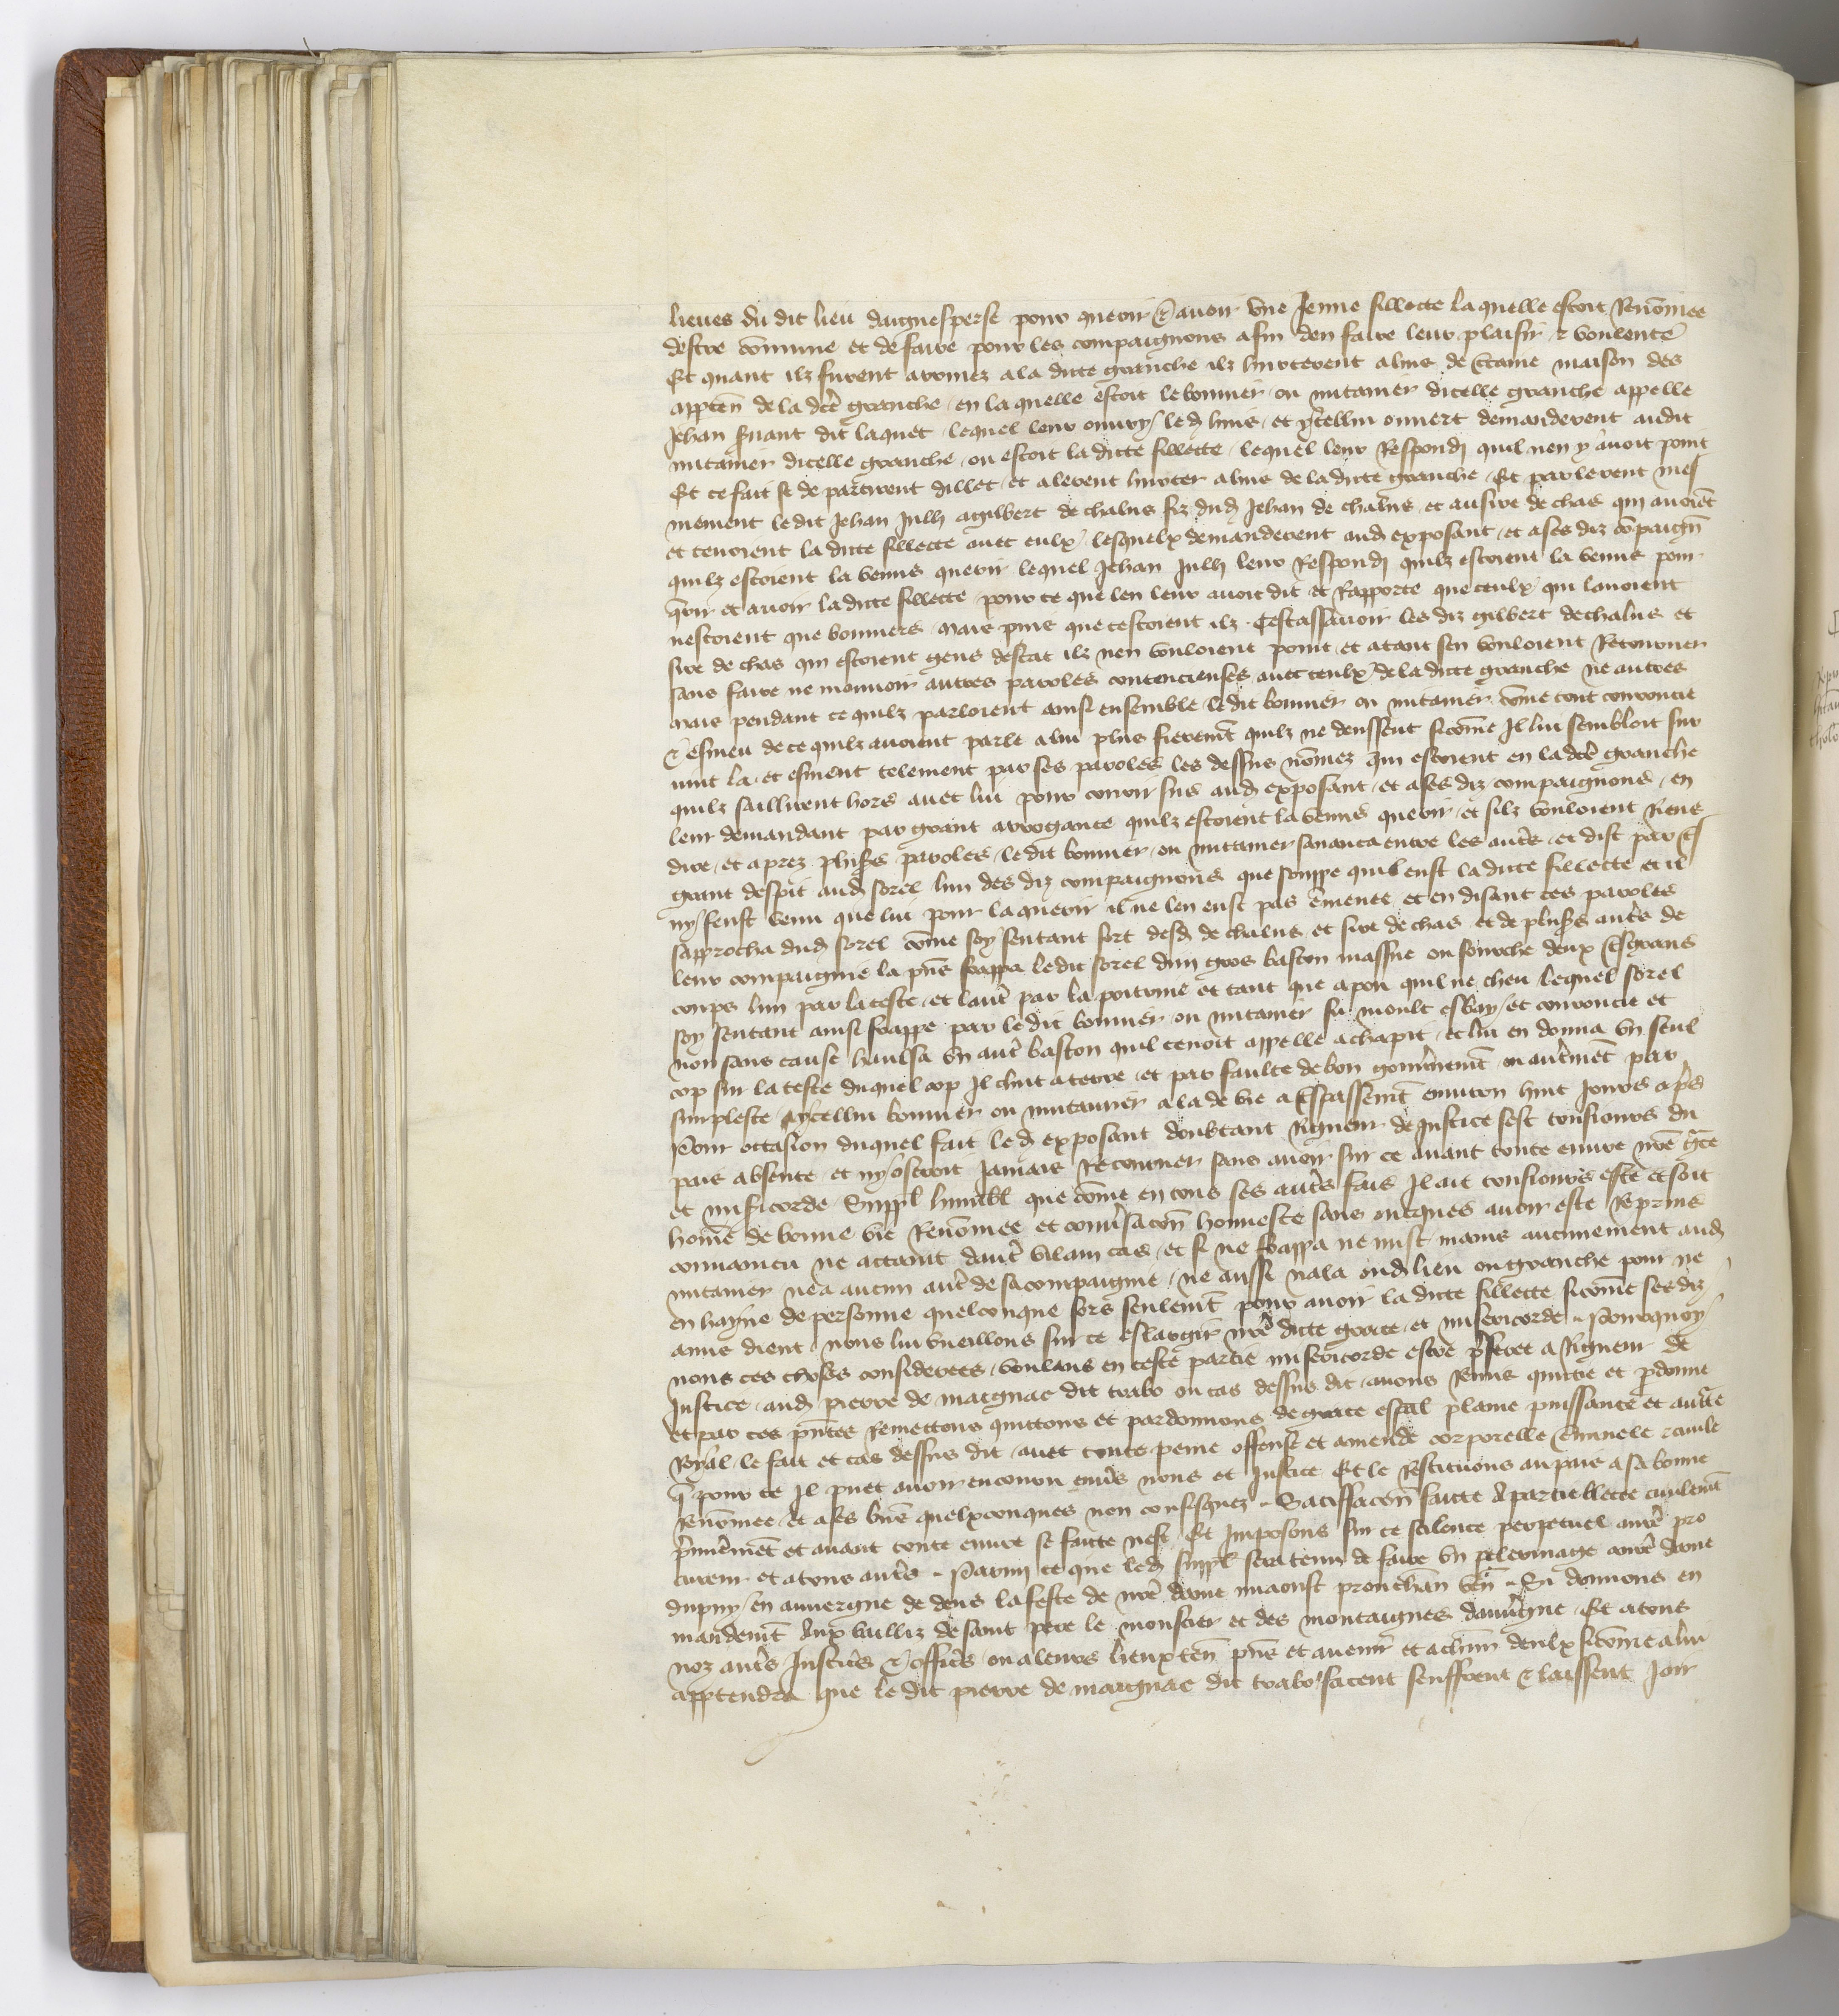 lieues du dit lieu daiguesperse pour querir & avoir une Jenne fillette laquelle estoit Renõmee
destre cõmune et de faire pour les compaignons afin den faire leur plaisir & voulenté
Et quant ilz furent arrivez a la dicte granche ilz hurterent a luis de certaine maison des
apptẽn de la dcẽ granche en la quelle estoit le bonnier ou mitanier dicelle granche appelle
Jehan dit laquet lequel leur ouvry led huis et ycellui ouvert demanderent audit
mitanier dicelle granche ou estoit la dicte fillette lequel leur Respondi quil nen y avoit point
Et ce fait se de partirent dillec et alerent hurter a luis de ladicte granche Et parlerent mes
mement ledit Jehan Julh agilbert de chalus filz dud Jehan de chalus et au sire de chas qui avoiẽt
et tenoient la dicte fillette avec eulx lesquelx demanderent aud exposant et a ses diz cõpaignõ
quilz estoient la venus querir lequel Jehan Julh leur Respondi quilz estoient la venus pour
q̃rir et avoir ladicte fillette pour ce que len leur avoit dit et Rapporte que ceulx qui lavoient
nestoient que bonniers mais puis que cestoient ilz Cestassavoir les diz gilbert de chalus et
sire de chas qui estoient gens destat ilz nen vouloient point et atant sen vouloient Retourner
sans faire ne mouvoir autres paroles contencieuses avec ceulx de la dicte granche ne autres
mais pendant ce quilz parloient ainsi ensemble ledit bonnier ou mitanier cõme tout courroucie
& esmeu de ce quilz avoient parle a lui plus fieremẽt quilz ne deussent sicõme Il lui sembloit sur
vint la et esmeut telement par ses paroles les dessus nõmez qui estoient en la dcẽ granche
quilz saillirent hors avec lui pour courir sus aud exposant et a ses diz compaignons en
leur demandant par grant arrogance quilz estoient la venus querir et silz vouloient Riens
dire et aprez plus̃s paroles ledit bonnier ou mitanier savanca entre les autr̃s et dist par tres
grant despit aud sorel lun des diz compaignons que quil eust la dicte fillette et il
ny feust venu que lui pour la querir il ne len eust pas ẽmenee et en disant ces paroles
sapprocha dud sorel cõme soy sentant fort desd de chalus et sire de chas et de plus̃s autr̃s de
leur compaignie la pñs frappa ledit sorel dun gros baston massue ou fourche deux tresgrans
coups lun par la teste et lautr̃ par la poitrine et tant que a pou quil ne cheu lequel sorel
soy sentant ainsi frappe par le dit bonnier ou mitanier fu moult esbay et courroucie et
non sans cause haulsa un autr̃ baston quil tenoit appelle achapit et lui en donna un seul
cop sur la teste duquel cop Il chut a terre et par faulte de bon gouv̾nemẽt ou autr̃mẽt par
simplesse ycellui bonnier ou mitanier a la de vie a trespassemẽt environ huit Jours ap̃s
Pour occasion duquel fait led exposant doubtant Rigueur de Justice sest tousiours du
pais absente et ny oseroit Jamais Retourner sans avoir sur ce avant toute euvre nr̃e gr̃ce
et misericorde Suppl humbl que cõme en tous ses autr̃s fais Il ait tousiours este et soit
homẽ de bonne vie Renõmee et conv̾sacõn honneste sans onques avoir este Reprins
convaincu ne actaint dautr̃ vilain cas et si ne frappa ne mist mains aucunement aud
mitanier ne a aucun autr̃ de sa compaignie ne aussi nala oud lieu ou granche pour ne
en hayne de personne quelconque fors seulemẽt pour avoir la dicte fillette sicõme sesdiz
amis dient nous lui vueillons sur ce eslargir nr̃e dicte grace et misericorde Pourquoy
nous ces choses considerees voulans en ceste partie misericorde estre p̃feree a Rigueur de
Justice aud pierre de maignac dit trabo ou cas dessus dit avons Remis quictie et p̱donne
et par ces pñtes Remettons quittons et pardonnons de grace esp̃al plaine puissance et auct̃e
Royal le fait et cas dessus dit avec toute peine offense et amende corporelle criminele & civile
q̃ pour ce Il puet avoir encouru env̾s nous et Justice Et le Restituons au pais a sa bonne
Renõmee et a ses biñs quelxconques non confisquez Satiffacõn faicte a partie blecee civilemẽt
p̃mierem̃ẽt et avant toute euvre se faicte nest Et Imposons sur ce scilence perpetuel a nr̃e pro
cureur et a tous autr̃s Parmi ce que led suppl sera tenu de faire un pelerinage a nr̃e dame
dupuy en auvergne de dens la feste de nr̃e dame miaoust prouchãn ven̾ Si donnons en
mandemẽt Aux bailliz de saint pere le monstier et des montaignes dauv̾gne Et a tous
noz autr̃s Justic̾s & offic̾s ou a leurs lieuxtẽn pñs et avenir et a chũn deulx sicõme a lui
apptendra que le dit pierre de maignac dit trabo facent seuffrent & laissent Joir